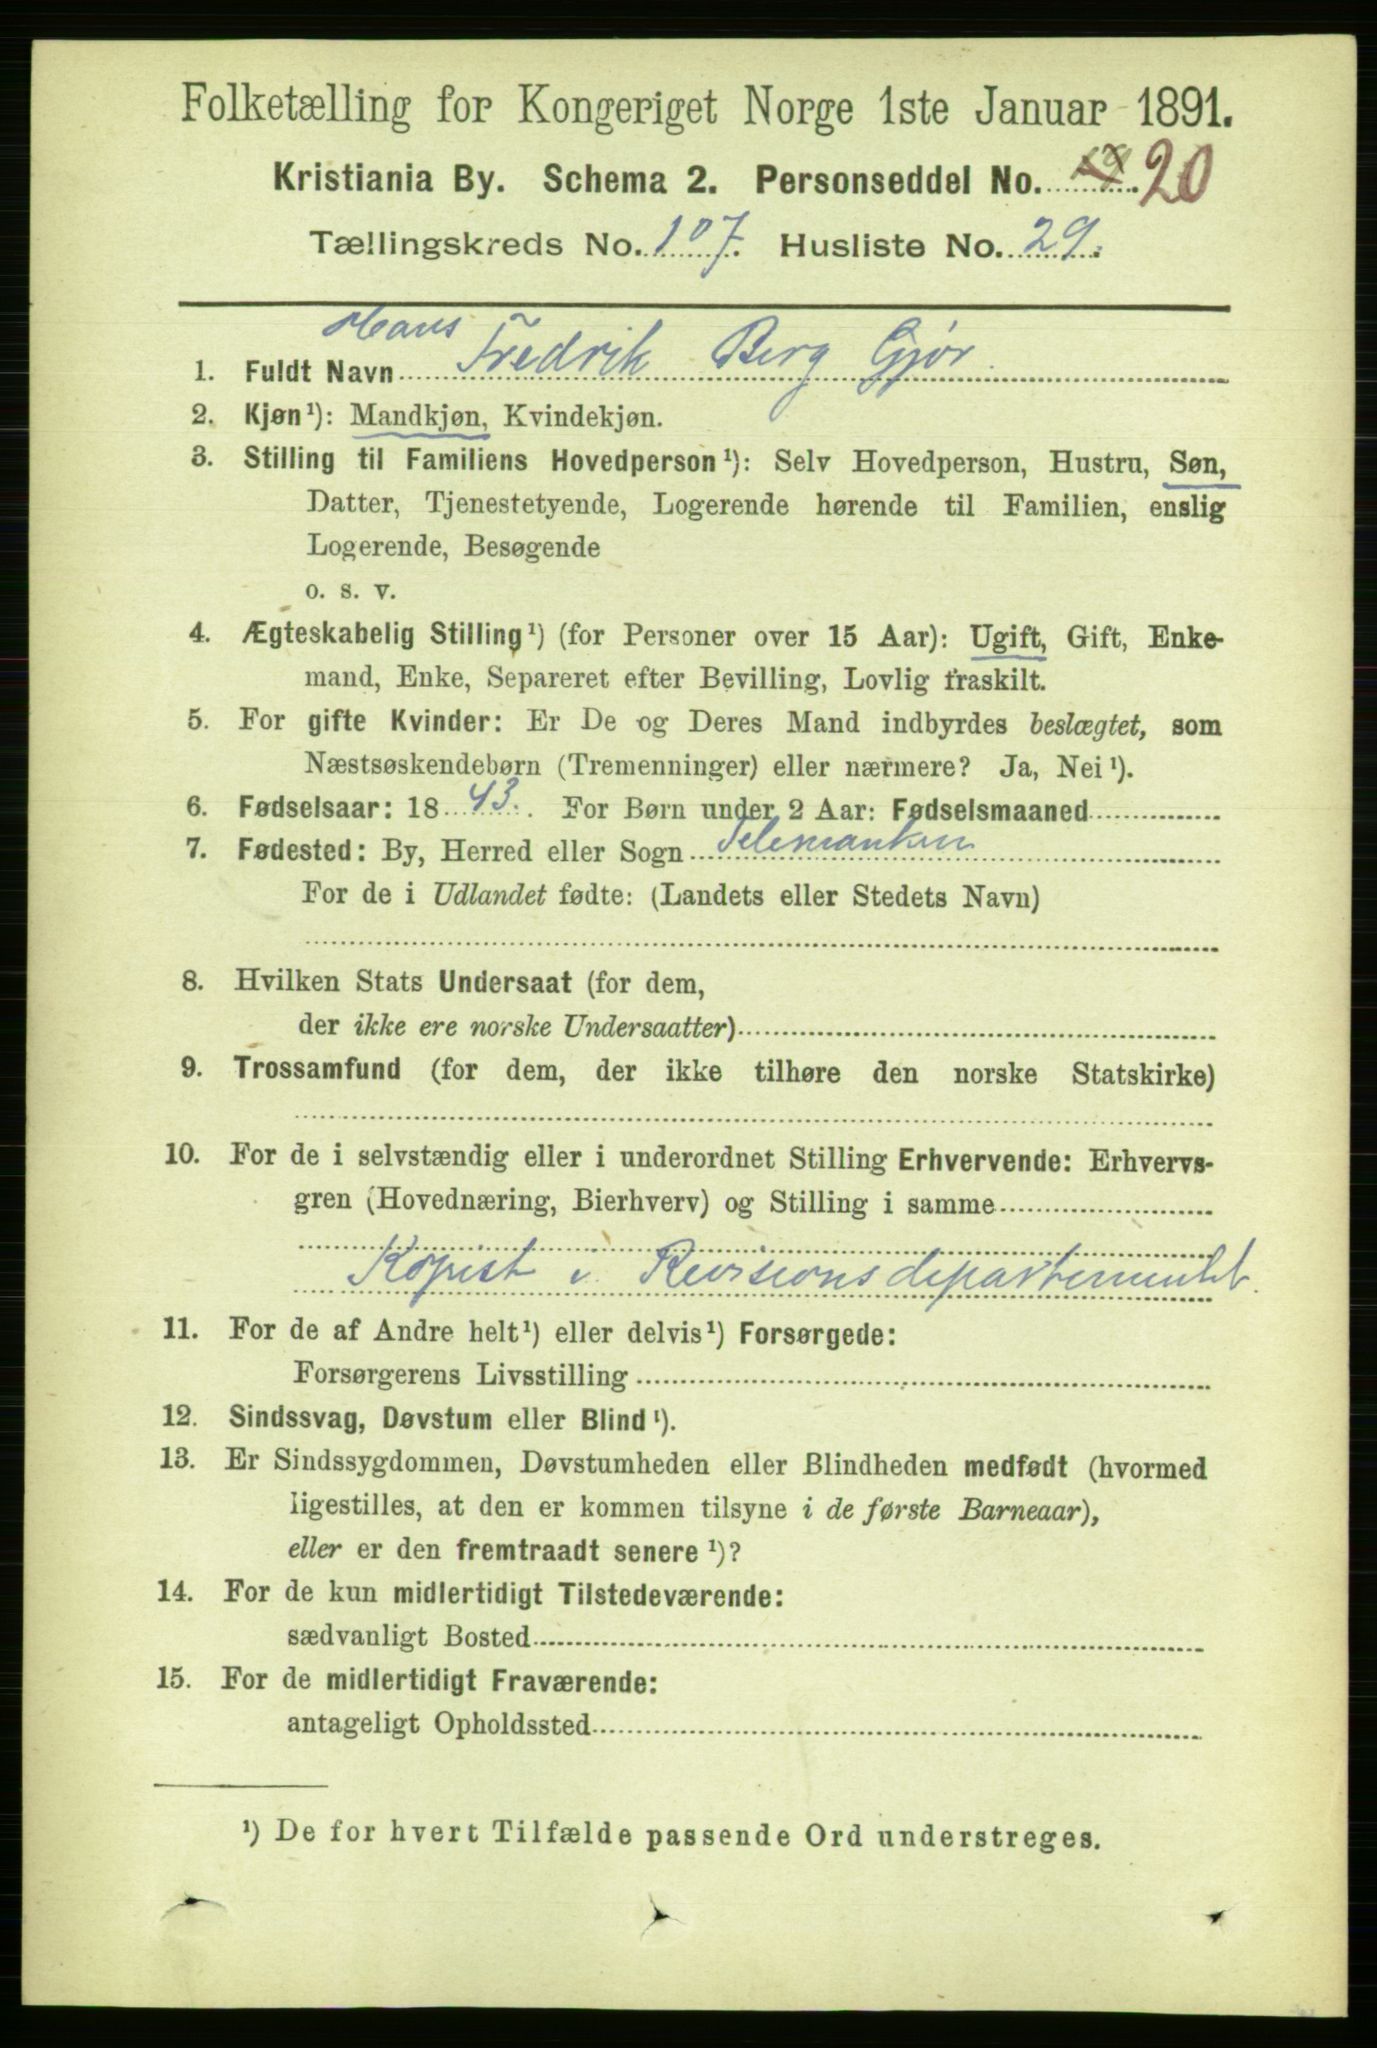 Folketælling for Kongeriget Norge 1ste Januar 1891.
Kristiania By. Schema 2. Personseddel No. 20
Tællingskreds No. 107. Husliste No. 29.
Hans
1. Fuldt Navn Fredrik Berg Gjør
2. Kjøn¹): Mandkjøn, Kvindekjøn.
3. Stilling til Familiens Hovedperson¹): Selv Hovedperson, Hustru, Søn,
Datter, Tjenestetyende, Logerende hørende til Familien, enslig
Logerende, Besøgende
o. s. v.
4. Ægteskabelig Stilling¹) (for Personer over 15 Aar): Ugift, Gift, Enke-
mand, Enke, Separeret efter Bevilling, Lovlig fraskilt.
5. For gifte Kvinder: Er De og Deres Mand indbyrdes beslægtet, som
Næstsøskendebørn (Tremenninger) eller nærmere? Ja, Nei¹).
6. Fødselsaar: 1843. For Børn under 2 Aar: Fødselsmaaned
7. Fødested: By, Herred eller Sogn Telemarken
For de i Udlandet fødte: (Landets eller Stedets Navn)
8. Hvilken Stats Undersaat (for dem,
der ikke ere norske Undersaatter)
9. Trossamfund (for dem, der ikke tilhøre den norske Statskirke)
10. For de i selvstændig eller i underordnet Stilling Erhvervende: Erhvervs-
gren (Hovednæring, Bierhverv) og Stilling i samme
Kopist i Revisionsdepartementet.
11. For de af Andre helt¹) eller delvis¹) Forsørgede:
Forsørgerens Livsstilling
12. Sindssvag, Døvstum eller Blind¹).
13. Er Sindssygdommen, Døvstumheden eller Blindheden medfødt (hvormed
ligestilles, at den er kommen tilsyne i de første Barneaar),
eller er den fremtraadt senere¹)?
14. For de kun midlertidigt Tilstedeværende:
sædvanligt Bosted
15. For de midlertidigt Fraværende:
antageligt Opholdssted
¹) De for hvert Tilfælde passende Ord understreges.